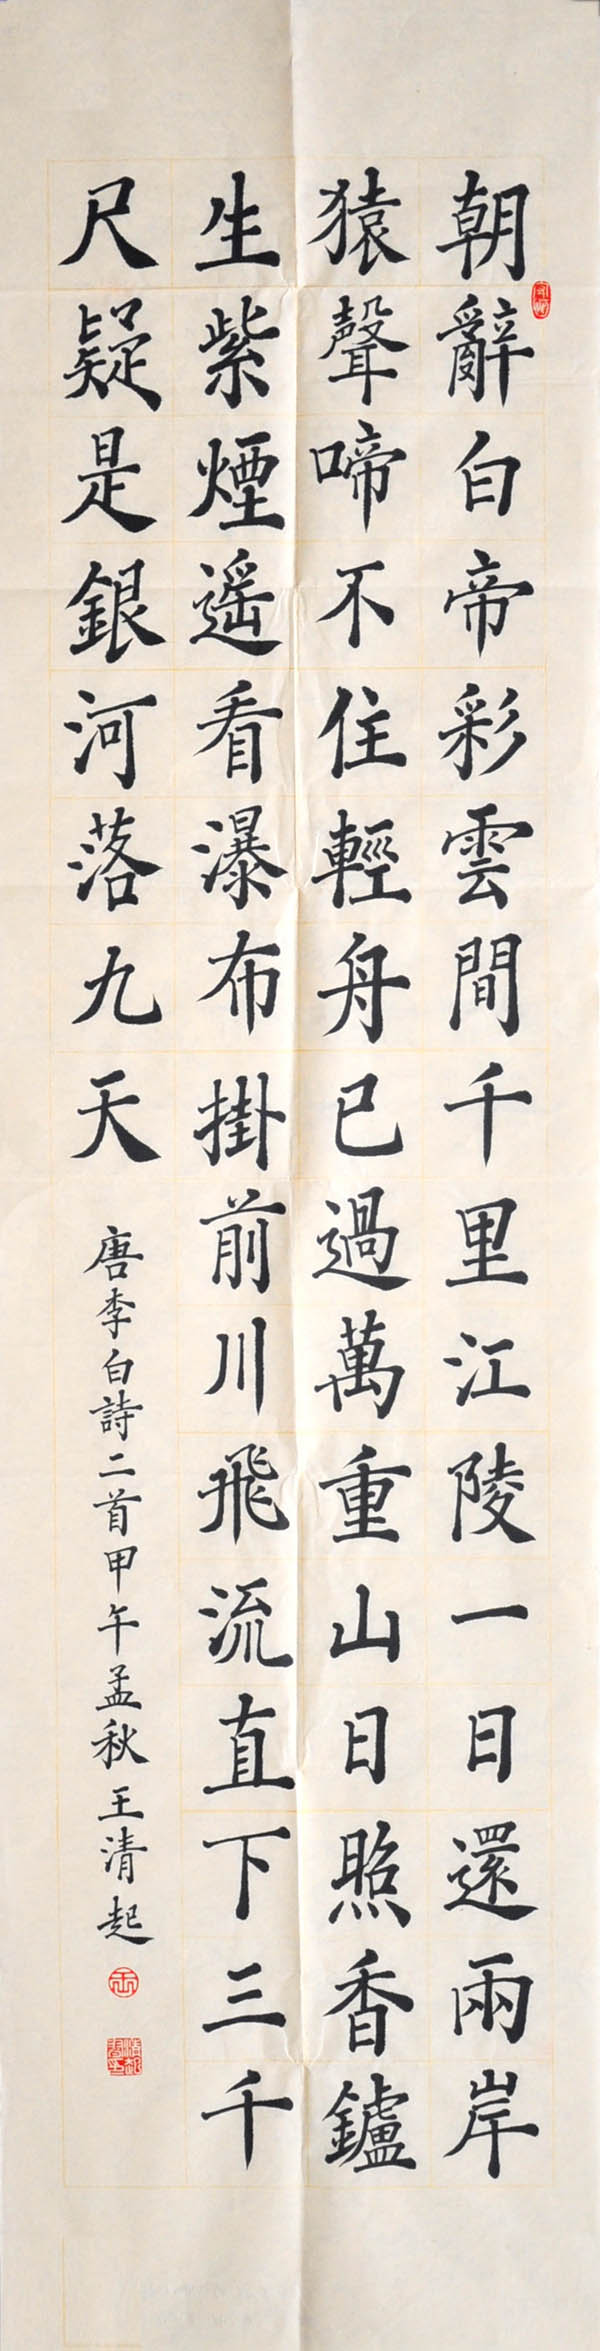 朝辭白帝彩雲間千里江陵一日還兩岸
猿聲啼不住輕舟已過萬重山日照香鑪
生紫煙遥看瀑布掛前川飛流直下三千
尺疑是銀河落九天
唐李白詩二首甲午孟秋王清起